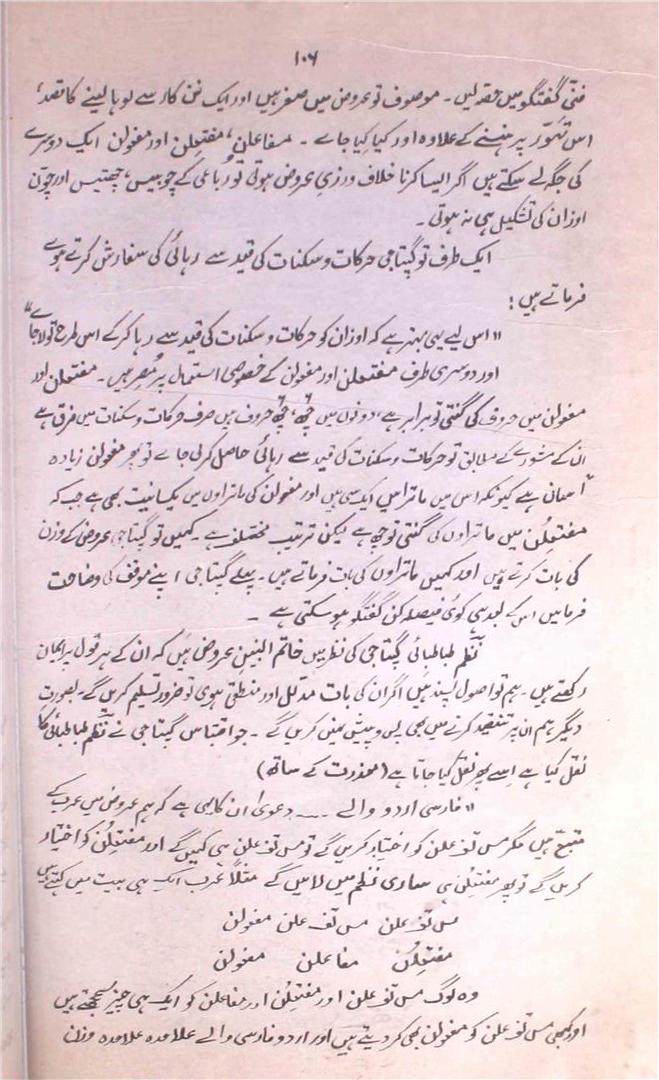 ۱۰۶
فنی گفتگو میں حصّہ لیں ۔ موصوف تو عروض میں صفر ہیں اور ایک فن کار سے لوہا لینے کا قصد،
اس تہوّر پر ہنسنے کے علاوہ اور کیا کیا جاے ۔ مفاعلن، مفتعلن اور مفعولن ایک دوسرے
کی جگہ لے سکتے ہیں اگر ایسا کرنا خلاف ورزیِ عروض ہوتی تو رباعی کے چوبیس، چھتیس اور چوّن
اوزان کی تشکیل ہی نہ ہوتی ۔
ایک طرف تو گپتا جی حرکات و سکنات کی قید سے رہائی کی سفارش کرتے ہوے
فرماتے ہیں :
"اس لیے یہی بہتر ہے کہ اوزان کو حرکات و سکنات کی قید سے رہا کرکے اس طرح تولا جاے"
اور دوسری طرف مفتعلن اور مفعولن کے خصوصی استعمال پر مُصِر ہیں ۔ مفتعلن اور
مفعولن میں حروف کی گنتی تو برابر ہے، دونوں میں چھ، چھ حروف ہیں صرف حرکات و سکنات میں فرق ہے
ان کے مشورے کے مطابق تو حرکات و سکنات کی قید سے رہائی حاصل کرلی جاے تو پھر مفعولن زیادہ
آسان ہے کیونکہ اس میں ماترائیں ایک سی ہیں اور مفعولن کی ماتراوں میں یکسانیت بھی ہے جب کہ
مفتعلن میں ماتراوں کی گنتی تو چھ ہے لیکن ترتیب مختلف ہے ۔ کہیں تو گپتا جی عروض کے وزن
کی بات کرتے ہیں اور کہیں ماتراوں کی بات فرماتے ہیں ۔ پہلے گپتا جی اپنے موقف کی وضاحت
فرمائیں اس کے بعد ہی کوئی فیصلہ کن گفتگو ہو سکتی ہے ۔
نظم طباطبائی گپتا جی کی نظر میں خاتم النبیّنِ عروض ہیں کہ ان کے ہر قول پر ایمان
رکھتے ہیں ۔ ہم تو اصول پسند ہیں اگر ان کی بات مدلل اور منطقی ہوی تو ضرور تسلیم کریں گے ۔ بصورت
دیگر ہم ان پر تنقید کرنے میں بھی پس و پیش نہیں کریں گے ۔ جو اقتباس گپتا جی نے نظم طباطبائی کا
نقل کیا ہے اِسے پھر نقل کیا جاتا ہے (معذرت کے ساتھ)
"فارسی اردو والے ۔۔۔۔ دعویٰ ان کا یہی ہے کہ ہم عروض میں عرب کے
متبع ہیں مگر مس تف علن کو اختیار کریں گے تو مس تف علن ہی کہیں گے اور مفتعلن کو اختیار
کریں گے تو پھر مفتعلن ہی ساری نظم میں لائیں گے مثلاً عرب ایک ہی بیت میں کہتے ہیں
مس تف علن مس تف علن مفعولن
مفتعلن مفاعلن مفعولن
وہ لوگ مس تف علن اور مفتعلن اور مفاعلن کو ایک ہی چیز سمجھتے ہیں
اور کبھی مس تف علن کو مفعولن بھی کر دیتے ہیں اور اردو فارسی والے علاحدہ علاحدہ وزن